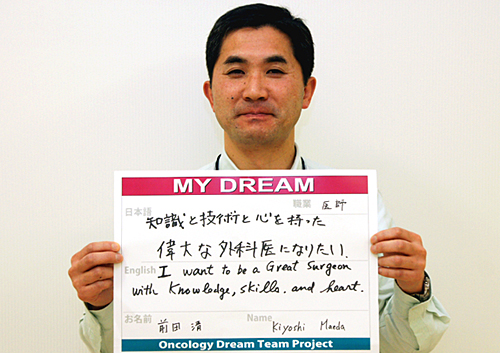 MY DREAM
日本語 職業 医師
知識と技術と心を持った
偉大な外科医になりたい.
English I want to be a Great Surgeon
with Knowledge, skills. and heart.
お名前 Name
前田 清 Kiyoshi Maeda
Oncology Dream Team Project